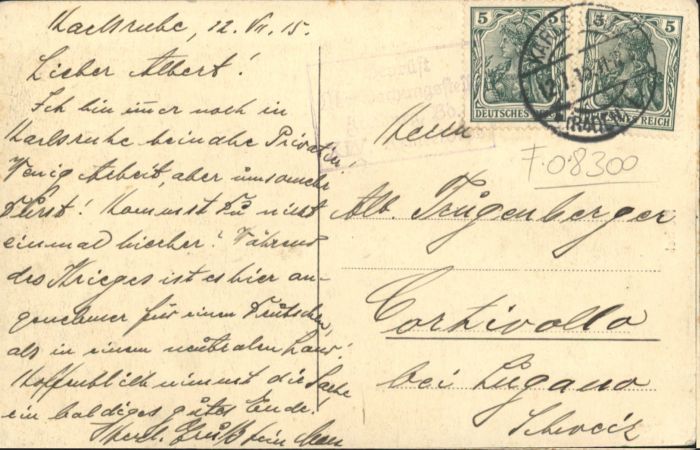 Karlsruhe, 12. VII. 15.
Lieber Albert!
Ich bin im̄er noch in
Karlsruhe beinahe Privatier.
Wenig Arbeit, aber umsomehr
Durst! Kommst Du nicht
einmal hierher? Während
des Krieges ist es hier an-
genehmer für einen Deutschen,
als in einem neutralen Land!
Hoffentlich nimmt die Sache
ein baldiges gutes Ende!
Herzl. Gruß Dein
5
5
5
DEUTSCHES
REICH
KARLS
(BADEN)
Geprüft
F.08300
Herrn
Alb. Trugenberger
Cortivallo
bei Lugano
Schweiz